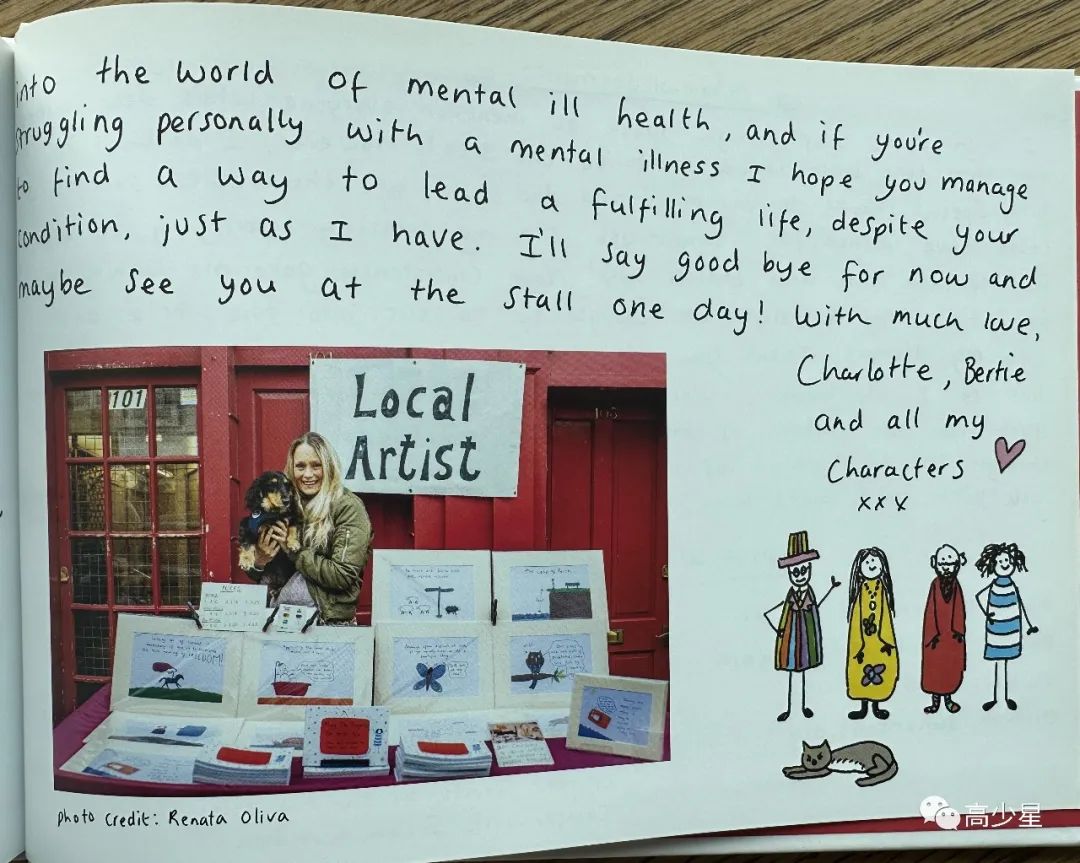 into the world of mental ill health, and if you're
struggling personally with a mental illness I hope you manage
to find a way to lead a fulfilling life, despite your
condition, just as I have. I'll say good bye for now and
maybe see you at the stall one day! With much love,
Charlotte, Bertie
and all my
Characters
x x x
101
103
Local
Artist
PRICES
Photo Credit: Renata Oliva
高少星